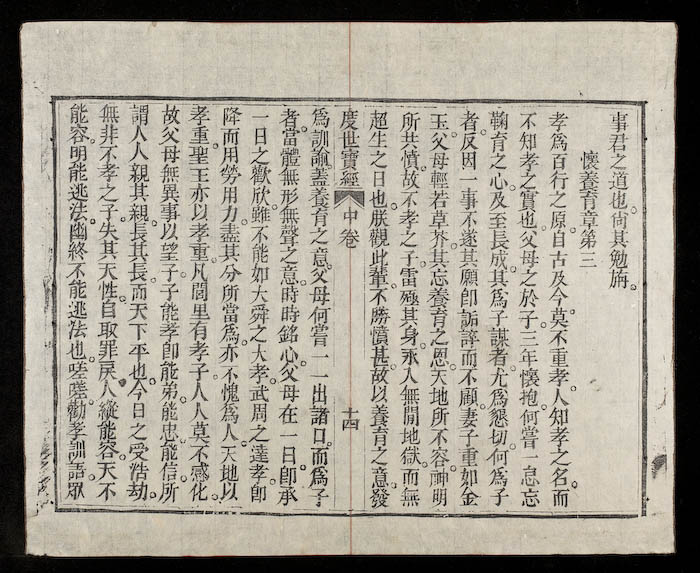 事君之道也。尙其勉旃。
懷養育章第三
孝爲百行之原。自古及今。莫不重孝。人知孝之名。而
不知孝之實也。父母之於子。三年懷抱。何嘗一息忘
鞠育之心。及至長成。其爲子謀者。尤爲懇切。何爲子
者。反因一事不遂其願。卽詬誶而不顧。妻子重如金
玉。父母輕若草芥。其忘養育之恩。天地所不容。神明
所共憤。故不孝之子。雷殛其身。永入無閒地獄。而無
超生之日也。朕觀此輩。不勝憤甚。故以養育之意。發
度世寶經 中卷 十四
爲訓諭。蓋養育之意。父母何嘗一一出諸口。而爲子
者。當體無形無聲之意。時時銘心。父母在一日。卽承
一日之歡欣。雖不能如大舜之大孝。武周之達孝。卽
降而用勞用力。盡其分所當爲。亦不愧爲人。天地以
孝重。聖王亦以孝重。凡閭里有孝子。人人莫不感化。
故父母無異事以望子。子能孝。卽能弟能忠能信。所
謂人人親其親。長其長。而天下平也。今日之受浩劫。
無非不孝之子。失其天性。自取罪戾。人縱能容。天不
能容。明能逃法。幽終不能逃法也。嗟嗟。勸孝訓語。眾